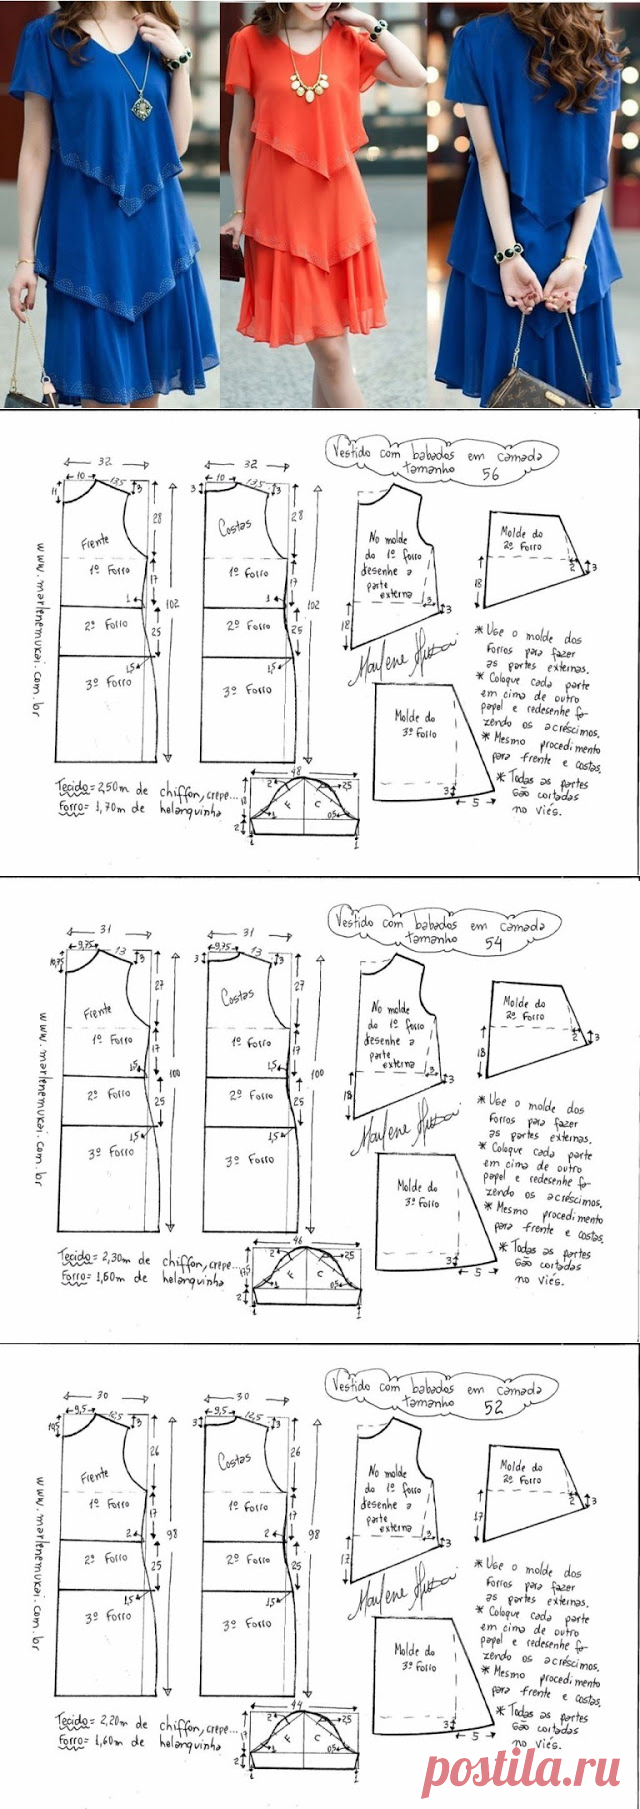 Vestido com babados em camada
tamanho 56
32
10
13,5
3
11
28
Frente
1º Forro
17
1
2º Forro
25
1,5
3º Forro
102
32
10
13,5
3
3
28
Costas
1º Forro
17
1
2º Forro
25
1,5
3º Forro
102
www.marlenemukai.com.br
No molde
do 1º forro
desenhe a
parte
externa
3
3
18
Molde do
2º Forro
2
3
18
Marlene Mukai
Molde do
3º Forro
3
5
* Use o molde dos
Forros para fazer
as partes externas.
* Coloque cada parte
em cima de outro
papel e redesenhe fa-
zendo os acréscimos.
* Mesmo procedimento
para frente e costas.
* Todas as partes
são cortadas
no viés.
Tecido = 2,50m de chiffon, crepe...
Forro = 1,70m de helanquinha
48
2
2,5
18
F
C
1
0,5
2
1
1
Vestido com babados em camada
tamanho 54
31
9,75
13
3
10,75
27
Frente
1º Forro
17
1,5
2º Forro
25
1,5
3º Forro
100
31
9,75
13
3
3
27
Costas
1º Forro
17
1,5
2º Forro
25
1,5
3º Forro
100
www.marlenemukai.com.br
No molde
do 1º forro
desenhe a
parte
externa
3
3
18
Molde do
2º Forro
2
3
18
Marlene Mukai
Molde do
3º Forro
3
5
* Use o molde dos
Forros para fazer
as partes externas.
* Coloque cada parte
em cima de outro
papel e redesenhe fa-
zendo os acréscimos.
* Mesmo procedimento
para frente e costas.
* Todas as partes
são cortadas
no viés.
Tecido = 2,30m de chiffon, crepe...
Forro = 1,60m de helanquinha
46
2
2,5
17,5
F
C
1
0,5
2
1
1
Vestido com babados em camada
tamanho 52
30
9,5
12,5
3
10,5
26
Frente
1º Forro
17
2
2º Forro
25
1,5
3º Forro
98
30
9,5
12,5
3
3
26
Costas
1º Forro
17
2
2º Forro
25
1,5
3º Forro
98
www.marlenemukai.com.br
No molde
do 1º forro
desenhe a
parte
externa
3
3
17
Molde do
2º Forro
2
3
17
Marlene Mukai
Molde do
3º Forro
3
5
* Use o molde dos
Forros para fazer
as partes externas.
* Coloque cada parte
em cima de outro
papel e redesenhe fa-
zendo os acréscimos.
* Mesmo procedimento
para frente e costas.
* Todas as partes
são cortadas
no viés.
Tecido = 2,20m de chiffon, crepe...
Forro = 1,60m de helanquinha
44
2
2,5
17
F
C
1
0,5
2
1
1
postila.ru